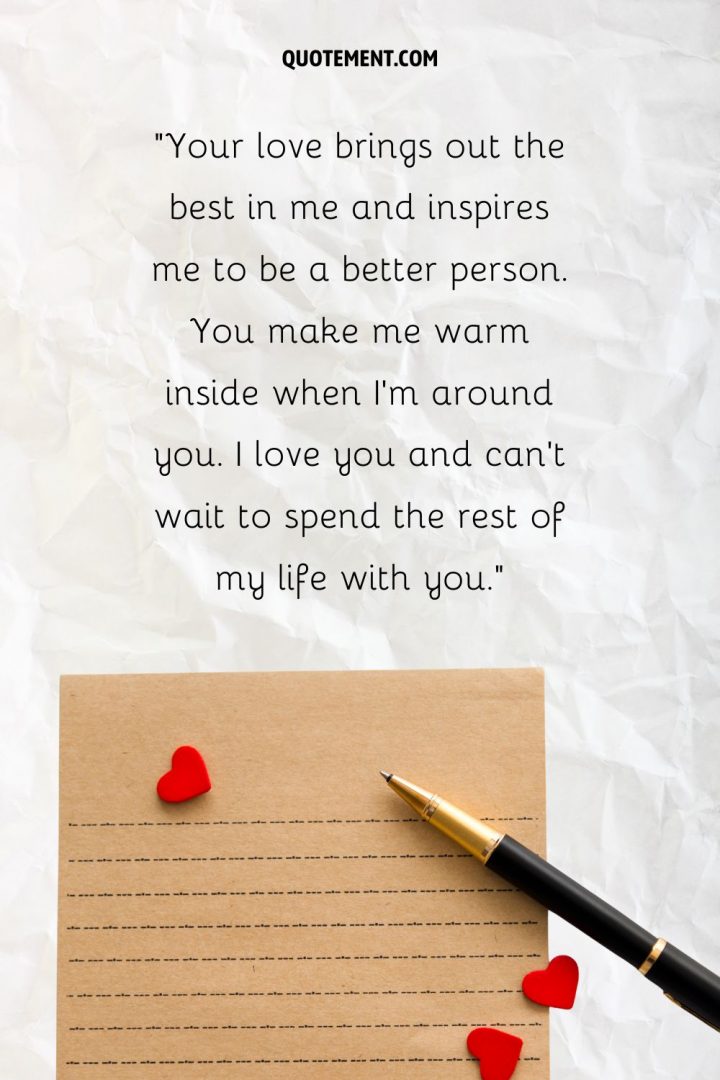 QUOTEMENT.COM
"Your love brings out the
best in me and inspires
me to be a better person.
You make me warm
inside when I'm around
you. I love you and can't
wait to spend the rest of
my life with you."